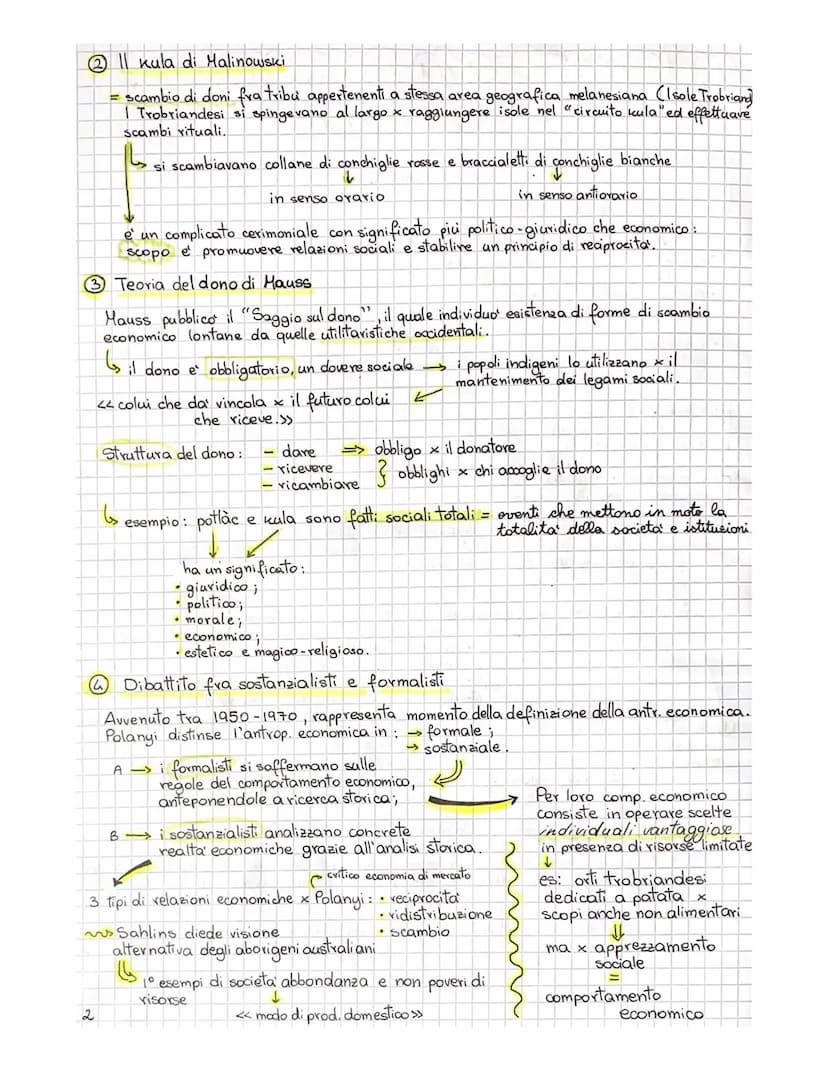 ② Il kula di Malinowski
= scambio di doni fra tribù appertenenti a stessa area geografica melanesiana (Isole Trobriand)
I Trobriandesi si spingevano al largo x raggiungere isole nel "circuito kula" ed effettuare
scambi rituali.
↳ si scambiavano collane di conchiglie rosse e braccialetti di conchiglie bianche
↓ ↓
in senso orario in senso antiorario
è un complicato cerimoniale con significato più politico-giuridico che economico:
scopo è promuovere relazioni sociali e stabilire un principio di reciprocità.
③ Teoria del dono di Mauss
Mauss pubblicò il "Saggio sul dono", il quale individuò esistenza di forme di scambio
economico lontane da quelle utilitaristiche occidentali.
↳ il dono è obbligatorio, un dovere sociale → i popoli indigeni lo utilizzano x il
mantenimento dei legami sociali.
<< colui che dà vincola x il futuro colui
che riceve.>>
Struttura del dono: - dare ⇒ obbligo x il donatore
- ricevere
- ricambiare } obblighi x chi accoglie il dono
↳ esempio: potlàc e kula sono fatti sociali totali = eventi che mettono in moto la
totalità della società e istituzioni
ha un significato:
• giuridico;
• politico;
• morale;
• economico;
• estetico e magico-religioso.
④ Dibattito fra sostanzialisti e formalisti
Avvenuto tra 1950-1970, rappresenta momento della definizione della antr. economica.
Polanyi distinse l'antrop. economica in: → formale;
→ sostanziale.
A → i formalisti si soffermano sulle
regole del comportamento economico,
anteponendole a ricerca storica;
B → i sostanzialisti analizzano concrete
realtà economiche grazie all'analisi storica.
critico economia di mercato
3 tipi di relazioni economiche x Polanyi: • reciprocità
• ridistribuzione
• scambio
Sahlins diede visione
alternativa degli aborigeni australiani
↳ 1° esempi di società abbondanza e non poveri di
risorse ↓
<< modo di prod. domestico>>
Per loro comp. economico
consiste in operare scelte
individuali vantaggiose
in presenza di risorse limitate
↓
es: orti trobriandesi
dedicati a patata x
scopi anche non alimentari
⇓
ma x apprezzamento
sociale
=
comportamento
economico
2